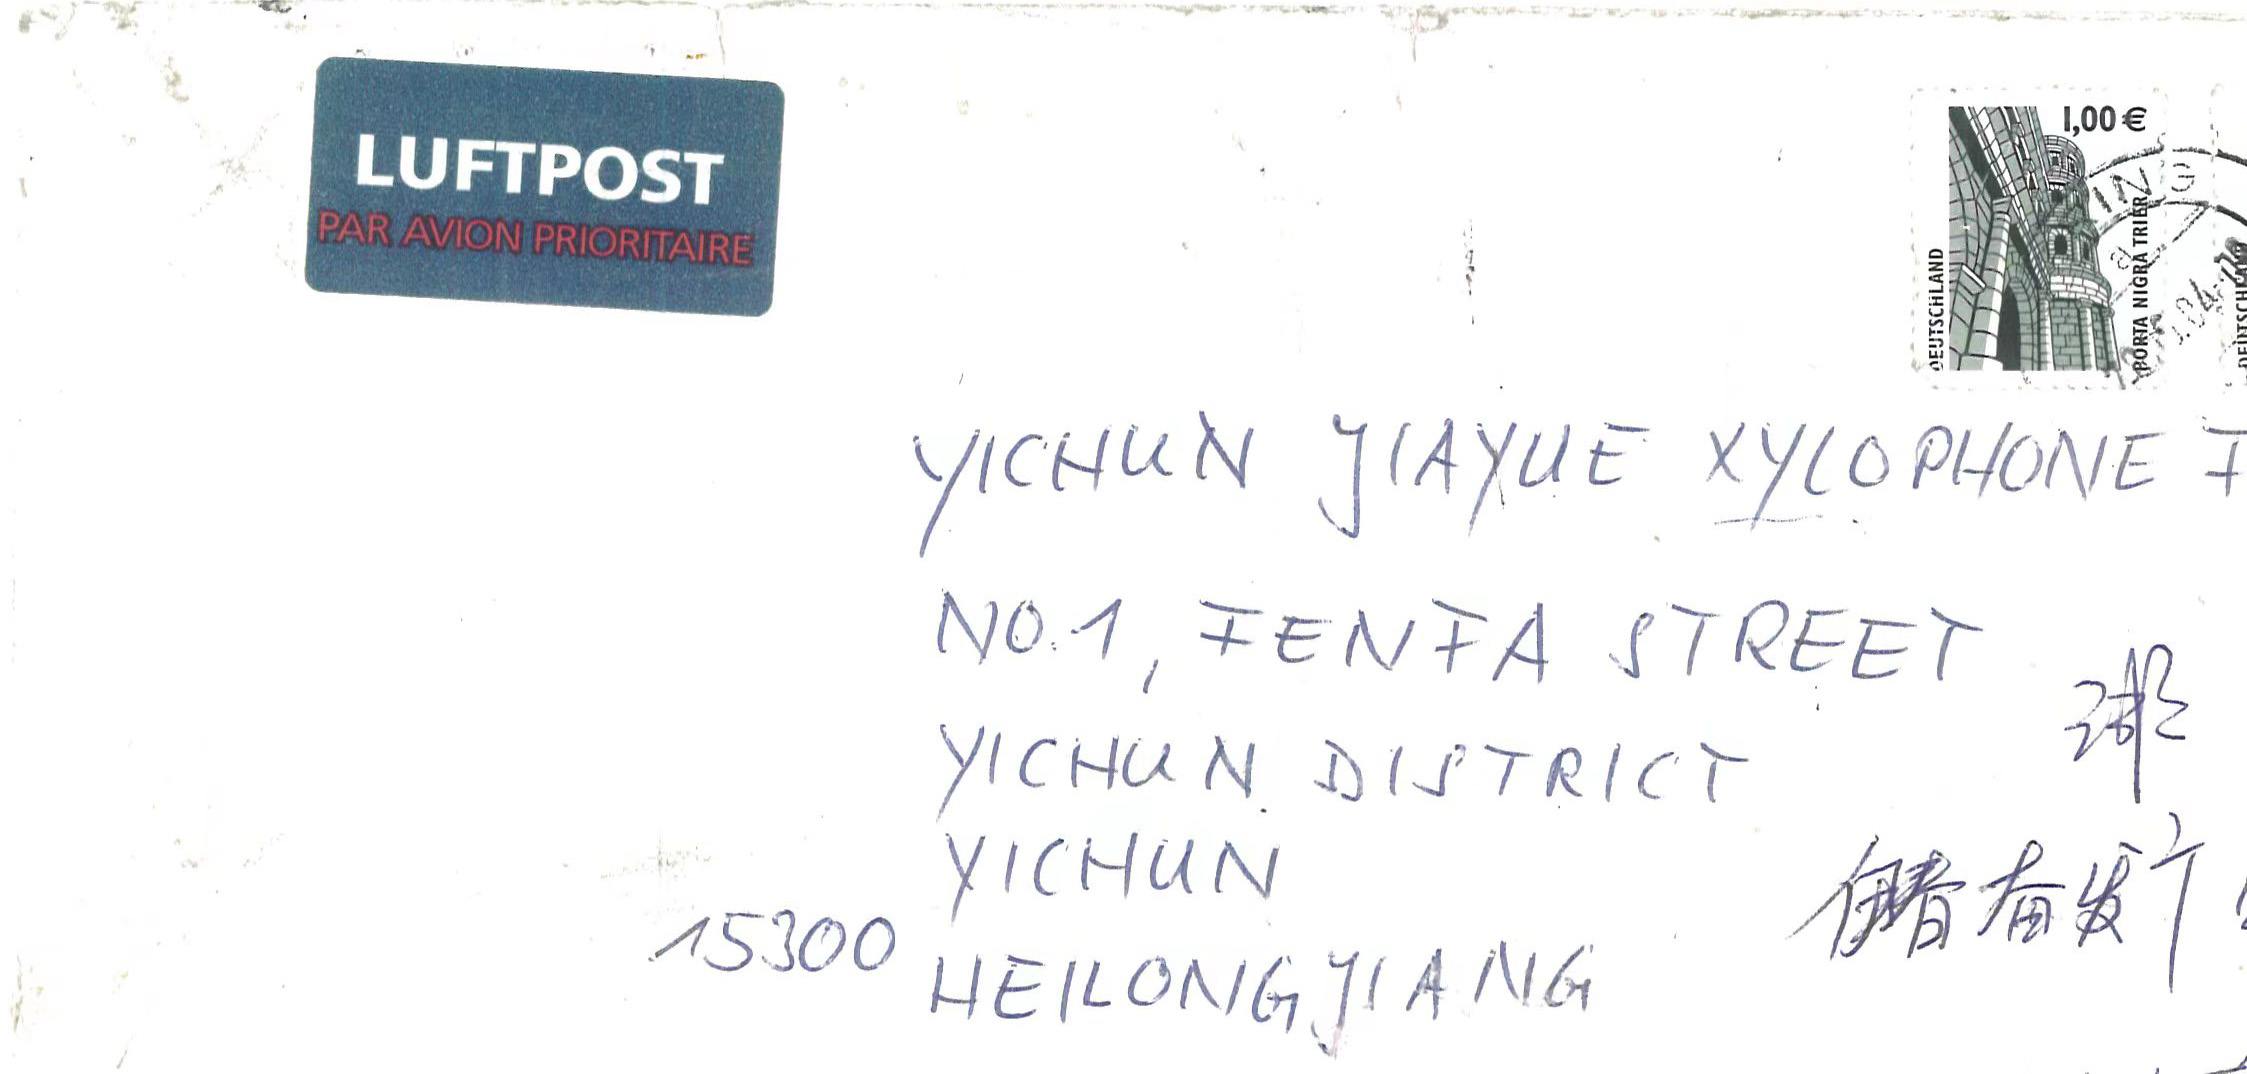 LUFTPOST
PAR AVION PRIORITAIRE
1,00 €
DEUTSCHLAND
PORTA NIGRA TRIER
YICHUN JIAYUE XYLOPHONE F
NO.1, FENFA STREET
YICHUN DISTRICT
YICHUN
伊春奋发
15300
HEILONGJIANG